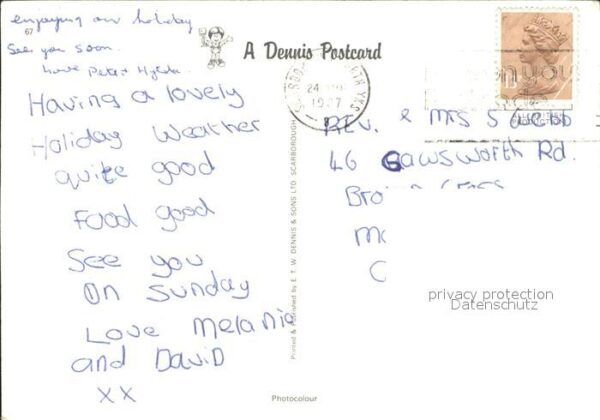 enjoying our holiday
See you soon.
love Peter
67
Having a lovely
Holiday Weather
quite good
Food good
See you
On Sunday
Love Melanie
and David
XX
A Dennis Postcard
Printed & Published by E. T. W. DENNIS & SONS LTD. SCARBOROUGH
24
REV. & MRS S
46 GAWSWORTH Rd.
Bro
privacy protection
Datenschutz
Photocolour